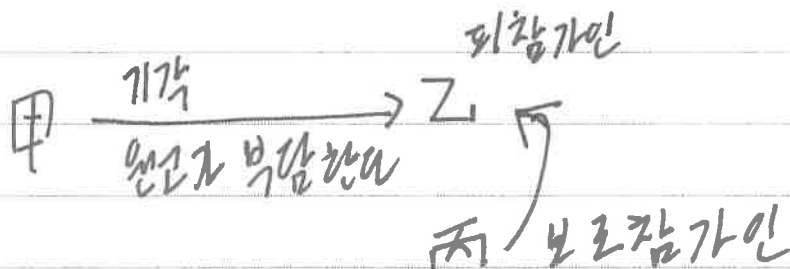 피참가인
甲 기각 乙
원고가 부담한다
丙 보조참가인